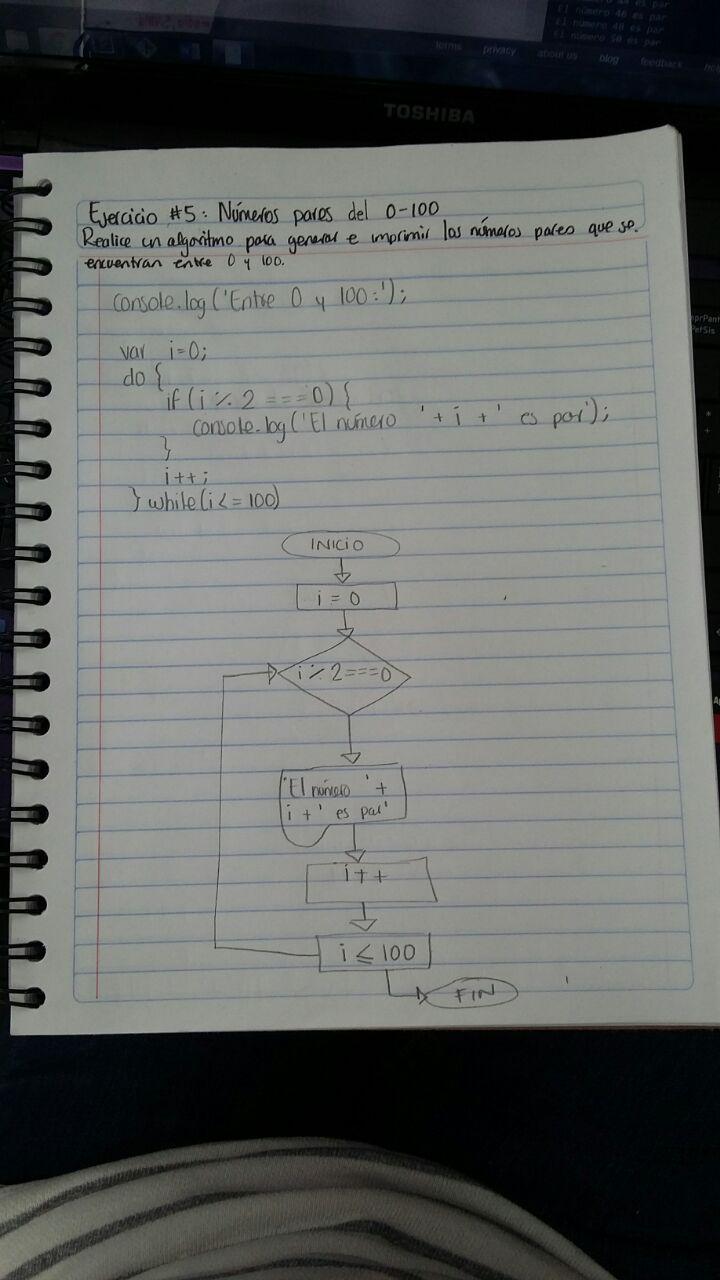 El número 46 es par
El número 48 es par
El número 50 es par
terms privacy about us blog feedback
TOSHIBA
Ejercicio #5: Números pares del 0-100
Realice un algoritmo para generar e imprimir los números pares que se
encuentran entre 0 y 100.
console.log('Entre 0 y 100:');
var i=0;
do {
if (i % 2 === 0) {
console.log('El número ' + i + ' es par');
}
i++;
} while(i <= 100)
INICIO
i = 0
i % 2 === 0
'El número ' +
i + ' es par'
i++
i ≤ 100
FIN